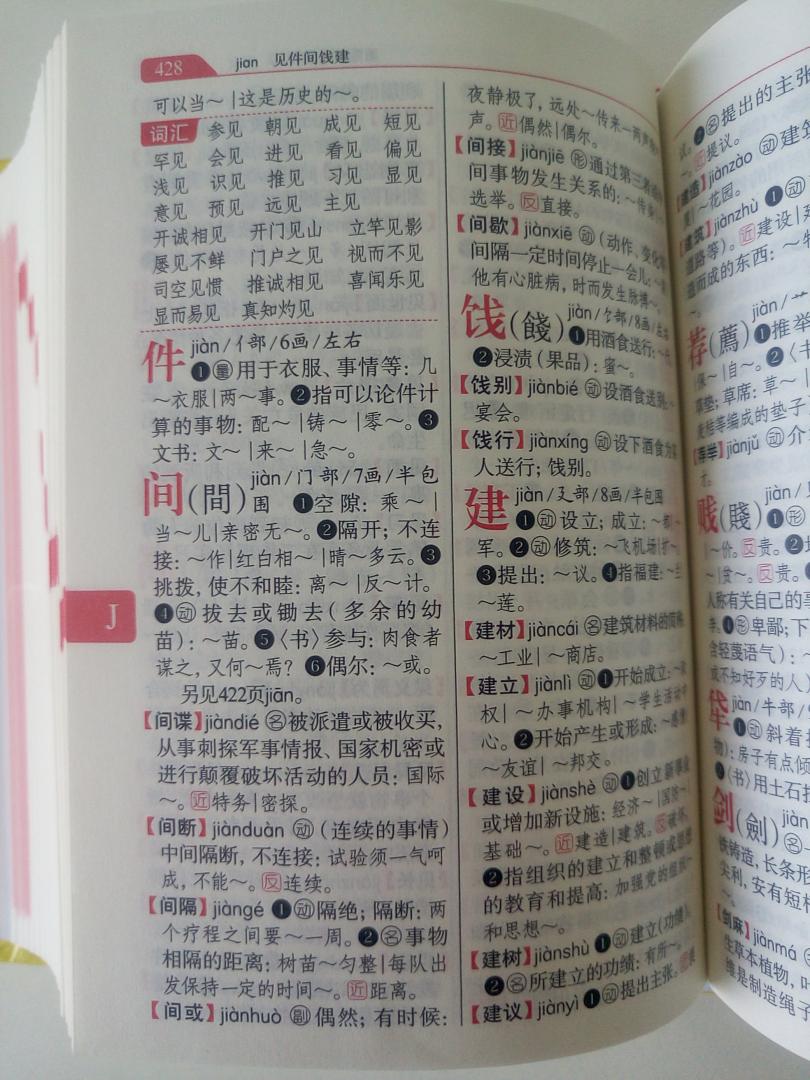 428
jiɑn 见件间饯建
可以当～|这是历史的～。
词汇 参见 朝见 成见 短见
罕见 会见 进见 看见 偏见
浅见 识见 推见 习见 显见
意见 预见 远见 主见
开诚相见 开门见山 立竿见影
屡见不鲜 门户之见 视而不见
司空见惯 推诚相见 喜闻乐见
显而易见 真知灼见
件 jiàn/亻部/6画/左右
❶量用于衣服、事情等：几
～衣服|两～事。❷指可以论件计
算的事物：配～|铸～|零～。❸
文书：文～|来～|急～。
间(間) jiàn/门部/7画/半包
围 ❶空隙：乘～|
当～儿|亲密无～。❷隔开；不连
接：～作|红白相～|晴～多云。❸
挑拨，使不和睦：离～|反～计。
❹动拔去或锄去(多余的幼
苗)：～苗。❺〈书〉参与：肉食者
谋之，又何～焉？❻偶尔：～或。
另见422页jiān。
【间谍】jiàndié 名被派遣或被收买，
从事刺探军事情报、国家机密或
进行颠覆破坏活动的人员：国际
～。近特务|密探。
【间断】jiànduàn 动(连续的事情)
中间隔断，不连接：试验须一气呵
成，不能～。反连续。
【间隔】jiàngé ❶动隔绝；隔断：两
个疗程之间要～一周。❷名事物
相隔的距离：树苗～匀整|每队出
发保持一定的时间～。近距离。
【间或】jiànhuò 副偶然；有时候：
J
夜静极了，远处～传来一两声
声。近偶然|偶尔。
【间接】jiànjiē 形通过第三
间事物发生关系的：～传
选举。反直接。
【间歇】jiànxiē 动(动作、变化
间隔一定时间停止一会儿：
他有心脏病，时而发生脉搏～。
饯(餞) jiàn/饣部/8画/左右
❶用酒食送行：
❷浸渍(果品)：蜜～。
【饯别】jiànbié 动设酒食送别：
宴会。
【饯行】jiànxíng 动设下酒食为
人送行；饯别。
建 jiàn/廴部/8画/半包围
❶动设立；成立：～都
军。❷动修筑：～飞机场|扩～。
❸提出：～议。❹指福建：～兰
～莲。
【建材】jiàncái 名建筑材料的简称：
～工业|～商店。
【建立】jiànlì 动❶开始成立：
权|～办事机构|～学生活动
心。❷开始产生或形成：～感情
～友谊|～邦交。
【建设】jiànshè 动❶创立新事业
或增加新设施：经济～|国防～|
基础～。近建造|建筑。反破坏。
❷指组织的建立和整顿或思想
的教育和提高：加强党的组织～
和思想～。
【建树】jiànshù ❶动建立(功绩)。
❷名所建立的功绩：有所～。
【建议】jiànyì ❶动提出主张。
❷名提出的主张
议。近提议。
【建造】jiànzào 动建筑
～花园。
【建筑】jiànzhù ❶动
道路等)。近建设|
造而成的东西：～
荐(薦) jiàn/艹
❶推举
保～|自～。❷〈书
草垫；草席：草～|
麦秸等编成的垫子
【荐举】jiànjǔ 动介
才。
贱(賤) jiàn/
❶形
～价。反贵。❷
～|贫～。反贵。
人称有关自己的事
❹形卑鄙；下
含轻蔑语气)：～
或不知好歹的人)
垈 jiàn/牛部/
❶动斜着
物)：房子有点倾
❷〈书〉用土石
剑(劍) jiàn
❶名
铁铸造，长条形
尖利，安有短柄
～。
【剑麻】jiànmá
生草本植物，叶
维是制造绳子